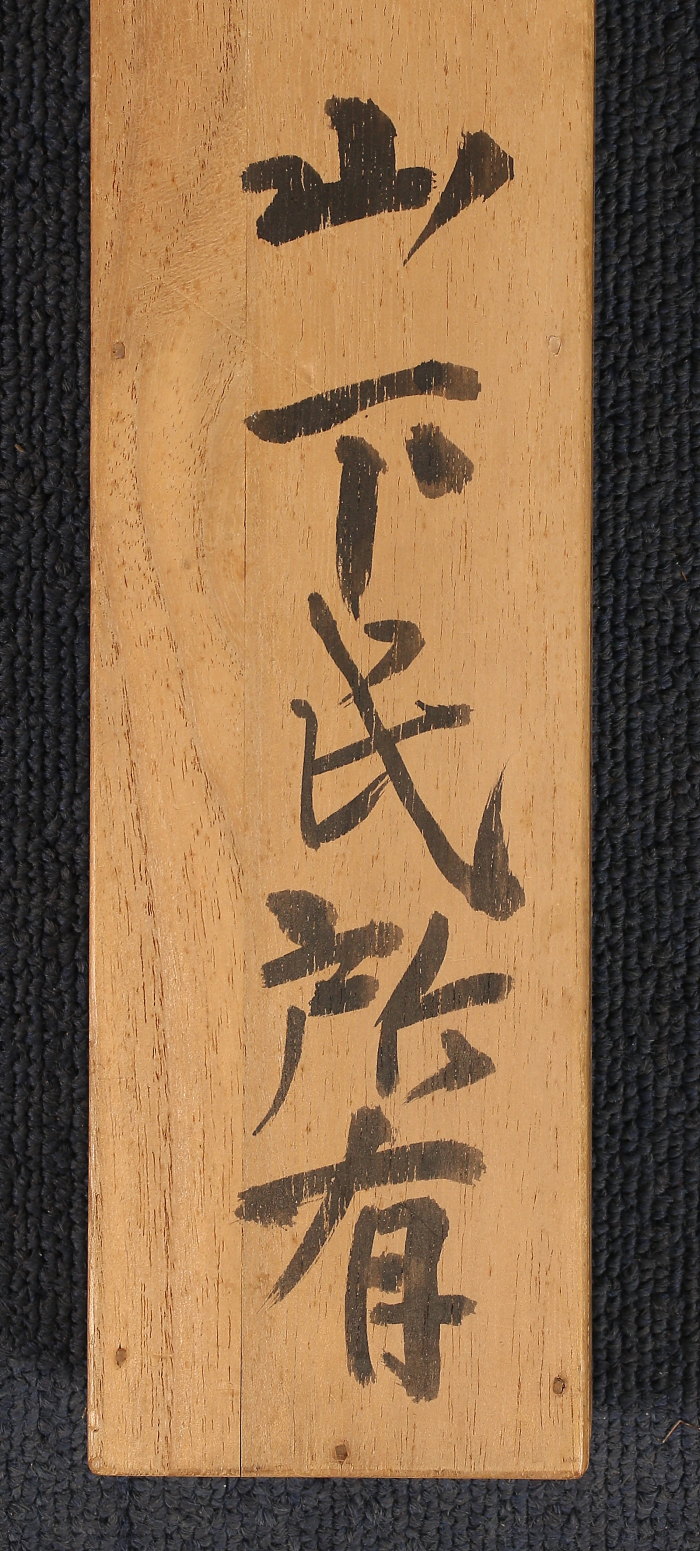 山下民所有